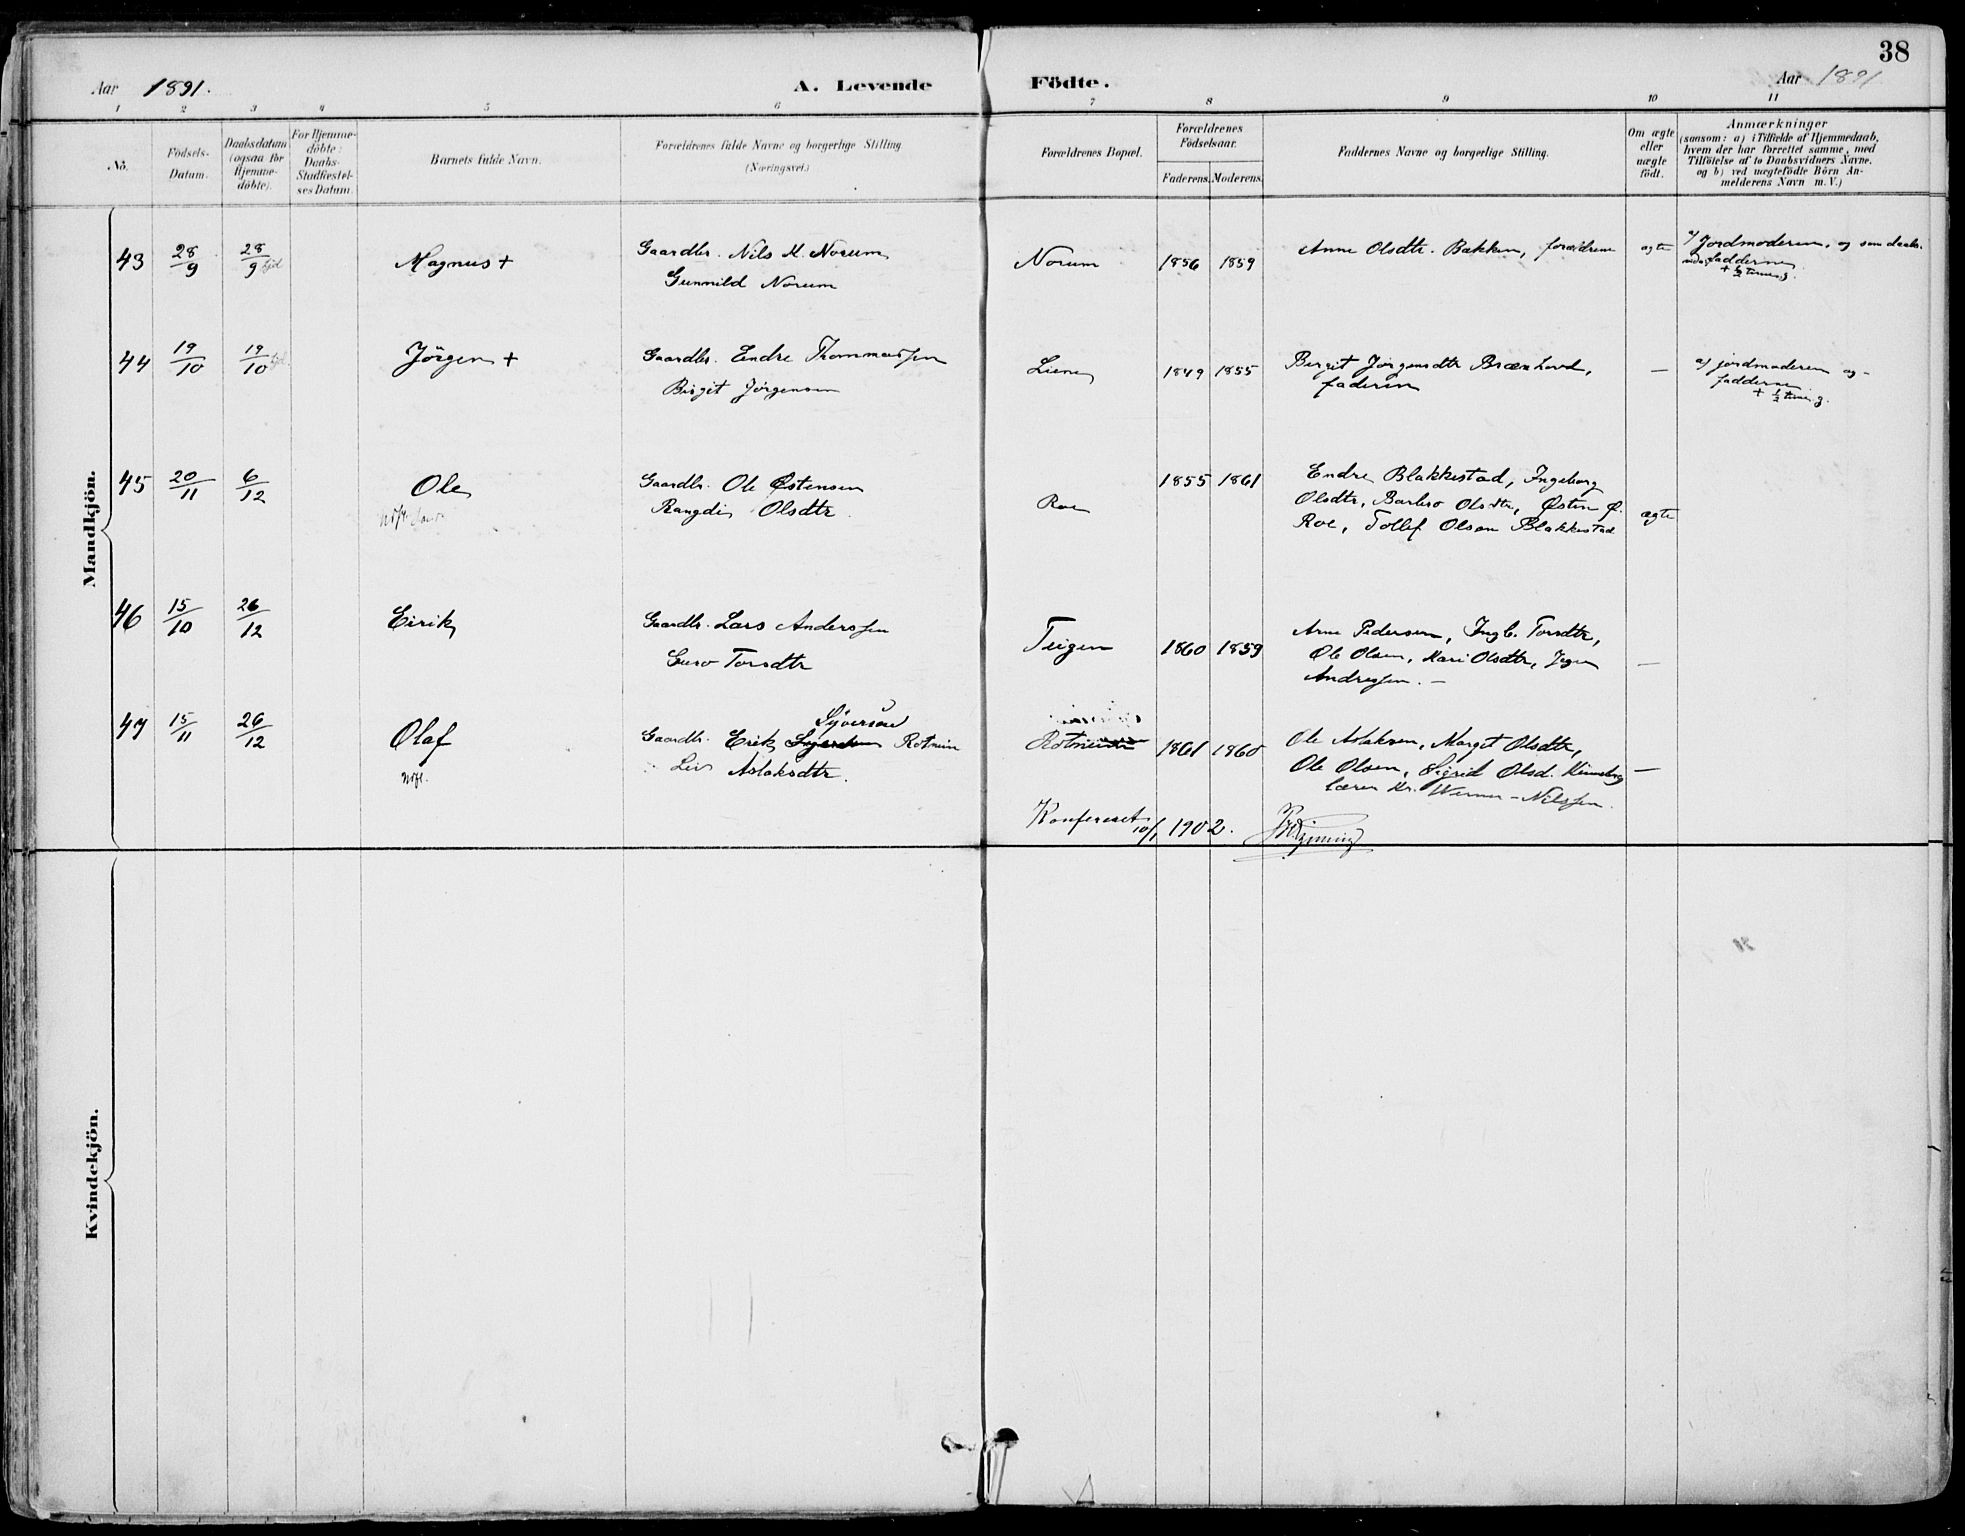 38
Aar 1891.
A. Levende Födte.
Aar 1891
1 2 3 4 5 6 7 8 9 10 11
No.
Födsels-Datum.
Daabsdatum (ogsaa for Hjemme-döbte).
For Hjemme-döbte: Daabs-Stadfæstel-ses Datum.
Barnets fulde Navn.
Forældrenes fulde Navne og borgerlige Stilling
(Næringsvei.)
Forældrenes Bopæl.
Forældrenes Födselsaar.
Faderens. Moderens.
Faddernes Navne og borgerlige Stilling.
Om ægte eller uægte födt.
Anmærkninger
(saasom: a) i Tilfælde af Hjemmedaab,
hvem der har forrettet samme, med
Tilföielse af to Daabsvidners Navne.
og b) ved uægtefödte Börn An-
melderens Navn m. V.)
Mandkjön.
43 28/9 28/9 Magnus + Gaardbr. Nils M. Norum
Gunnild Norum
Norum 1856 1859 Anne Olsdtr. Bakken, forældrene ægte a) Jordmoderen, og som daabs-
fadderne
44 19/10 19/10 Jörgen + Gaardbr. Endre Thommassen
Birgit Jörgensen
Liene 1849 1855 Birgit Jörgensdtr Brænhovd,
faderen
— a) jordmoderen og
fadderne
45 20/11 6/12 Ole Gaardbr. Ole Østensen
Rangdi Olsdtr.
Roe 1855 1861 Endre Blakkestad, Ingeborg
Olsdtr, Barbro Olsdtr, Østen Ø.
Roe, Tollef Olsen Blakkestad
ægte
46 15/10 26/12 Eirik Gaardbr. Lars Anderssen
Guro Torsdtr
Teigen 1860 1859 Arne Pedersen, Ingb. Torsdtr,
Ole Olsen, Mari Olsdtr,
Andressen. —
—
47 15/11 26/12 Olaf Gaardbr. Erik Syversen Rotneim
Liv Aslaksdtr.
1861 1860 Ole Aslaksen, Margit Olsdtr,
Ole Olsen, Sigrid Olsd.
Lærer Kr. Werner-Nilssen.
—
Konfereret 10/1 1902.
Kvindekjön.